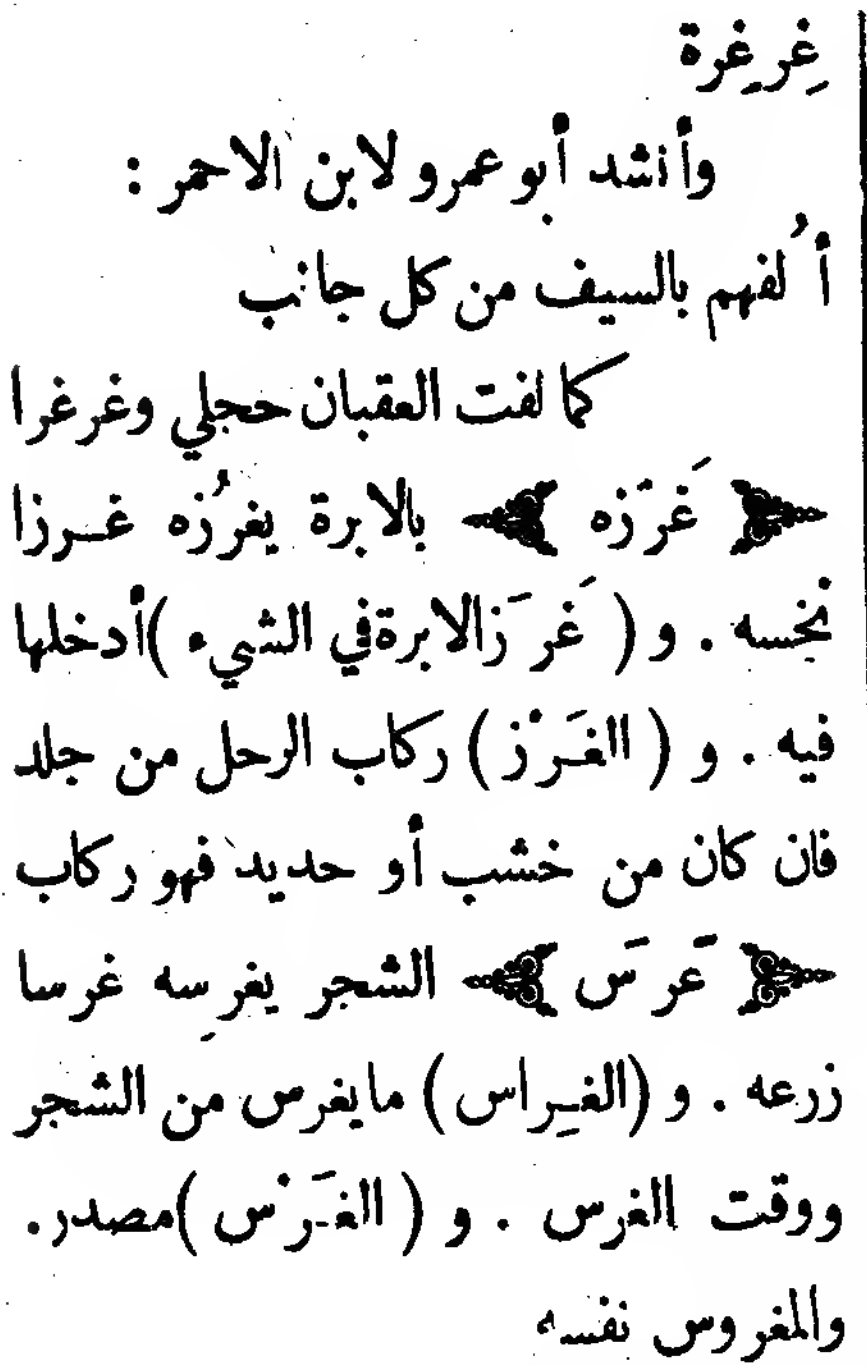 غِرغِرة
وأنشد أبو عمرو لابن الاحمر :
أُلفهم بالسيف من كل جانب
كما لفت العقبان حجلي وغرغرا
﴿ غَرَزه ﴾ بالابرة يغرُزه غرزا
نخسه . و ( غَرَز الابرة في الشيء ) أدخلها
فيه . و ( الغَرْز ) ركاب الرحل من جلد
فان كان من خشب أو حديد فهو ركاب
﴿ غَرَس ﴾ الشجر يغرِسه غرسا
زرعه . و ( الغِراس ) ما يغرس من الشجر
ووقت الغرس . و ( الغَرْس ) مصدر .
والمغروس نفسه